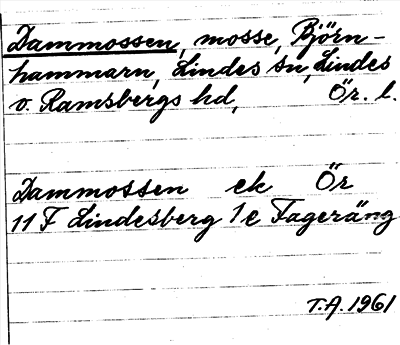 Dammossen, mosse, Björn-
hammarn, Lindes sn, Lindes
o. Ramsbergs hd, Ör. l.
Dammossen ek Ör
11 F Lindesberg 1e Fageräng
T.A. 1961